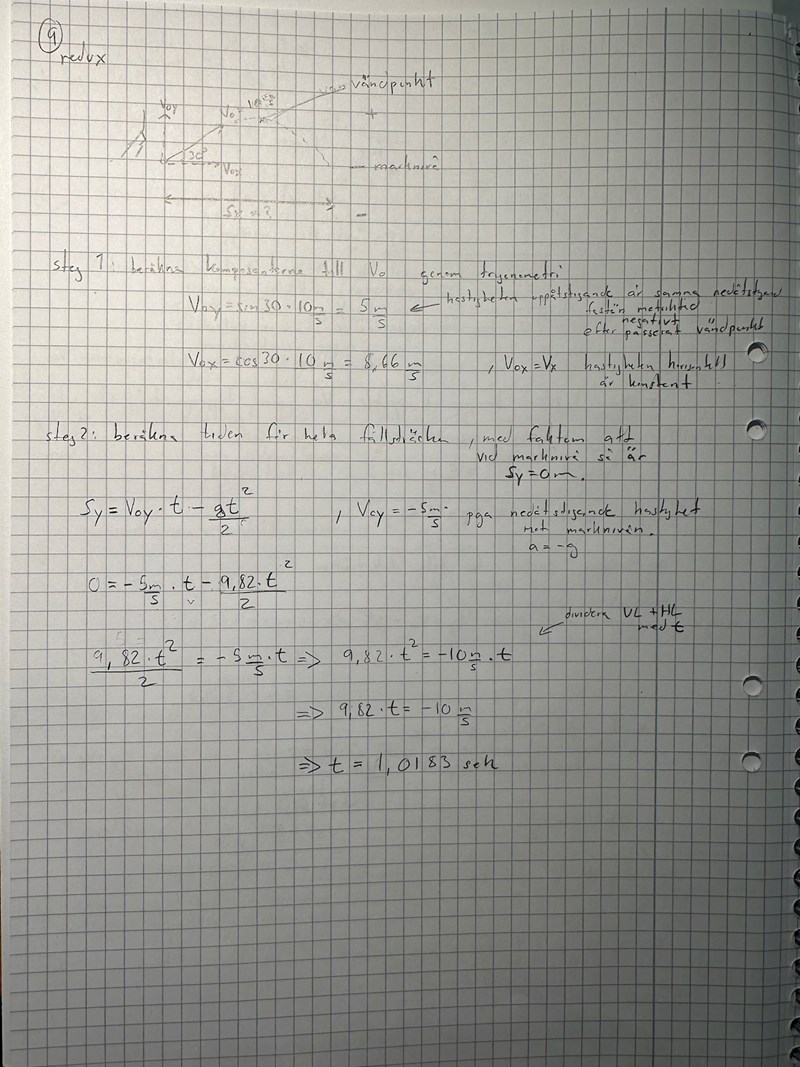 9
redux
vändpunkt
Voy
Vo
+
30°
Vox
marknivå
Sx = ?
-
steg 1: beräkna komposanterna till Vo genom trygonometri
Voy = sin 30 · 10 m/s = 5 m/s
hastigheten uppåtstigande är samma
fastän
negativt
efter passerat vändpunkt
Vox = cos 30 · 10 m/s = 8,66 m/s , Vox = Vx hastigheten
är konstant
steg 2: beräkna tiden för hela , med faktom att
vid marknivå så är
Sy = 0m.
Sy = Voy · t - gt²/2 , Voy = -5 m/s pga nedåtstigande hastighet
mot marknivån.
a = -g
0 = -5 m/s · t - 9,82 · t²/2
dividera VL + HL
med t
9,82 · t²/2 = -5 m/s · t => 9,82 · t² = -10 m/s · t
=> 9,82 · t = -10 m/s
=> t = 1,0183 sek